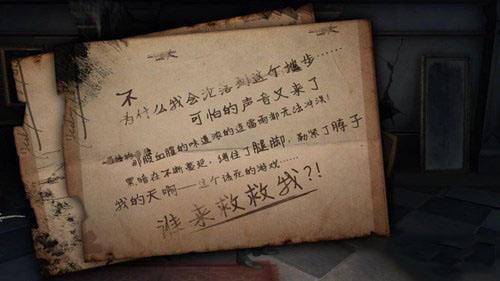 不
为什么我会沦落到这个地步……
可怕的声音又来了
那股血腥的味道浓的连雷雨都无法冲淡!
黑暗在不断蔓延,缠住了腿脚,勒紧了脖子
我的天啊——这个该死的游戏……
谁来救救我?!